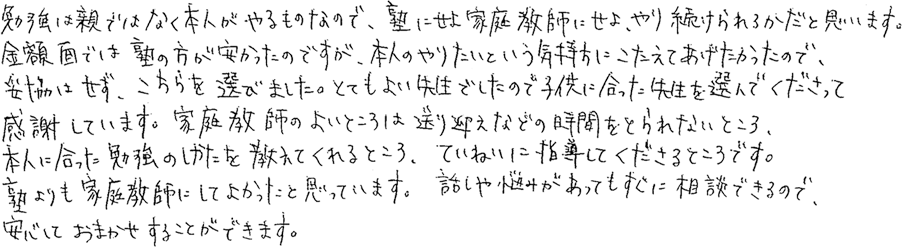 勉強は親ではなく本人がやるものなので、塾にせよ家庭教師にせよ、やり続けられるかだと思います。
金額面では塾の方が安かったのですが、本人のやりたいという気持ちにこたえてあげたかったので、
妥協はせず、こちらを選びました。とてもよい先生でしたので子供に合った先生を選んでくださって
感謝しています。家庭教師のよいところは送り迎えなどの時間をとられないところ、
本人に合った勉強のしかたを教えてくれるところ、ていねいに指導してくださるところです。
塾よりも家庭教師にしてよかったと思っています。話しや悩みがあってもすぐに相談できるので、
安心しておまかせすることができます。